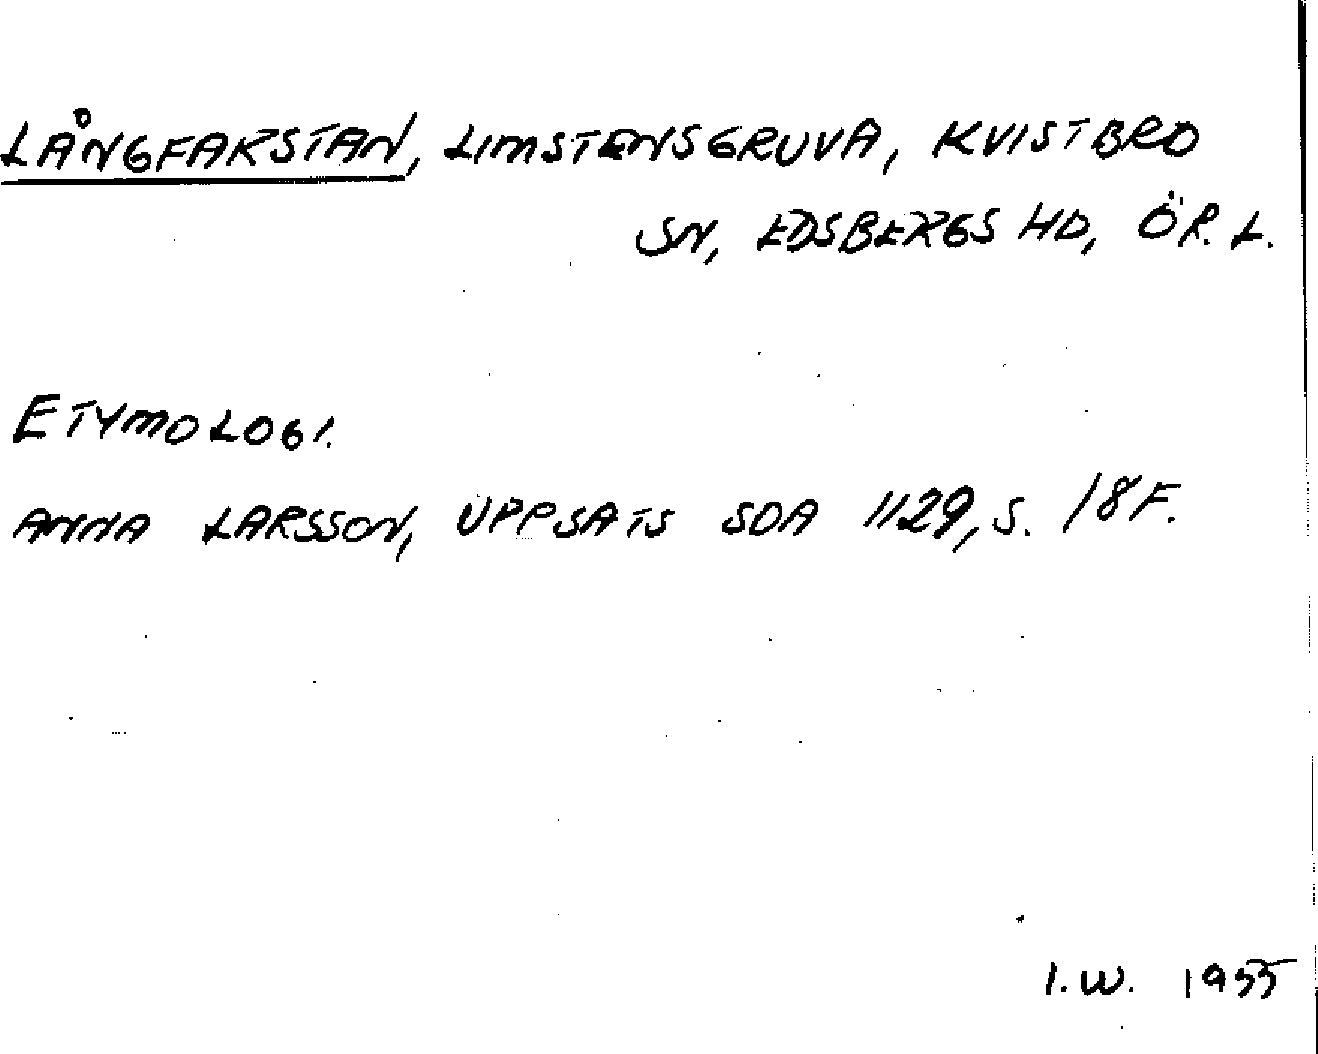 LÅNGFARSTAN, LIMSTENSGRUVA, KVISTBRO
SN, EDSBERGS HD, ÖR. L.
ETYMOLOGI.
ANNA LARSSON, UPPSATS SOA 1129, S. 18F.
I.W. 1955